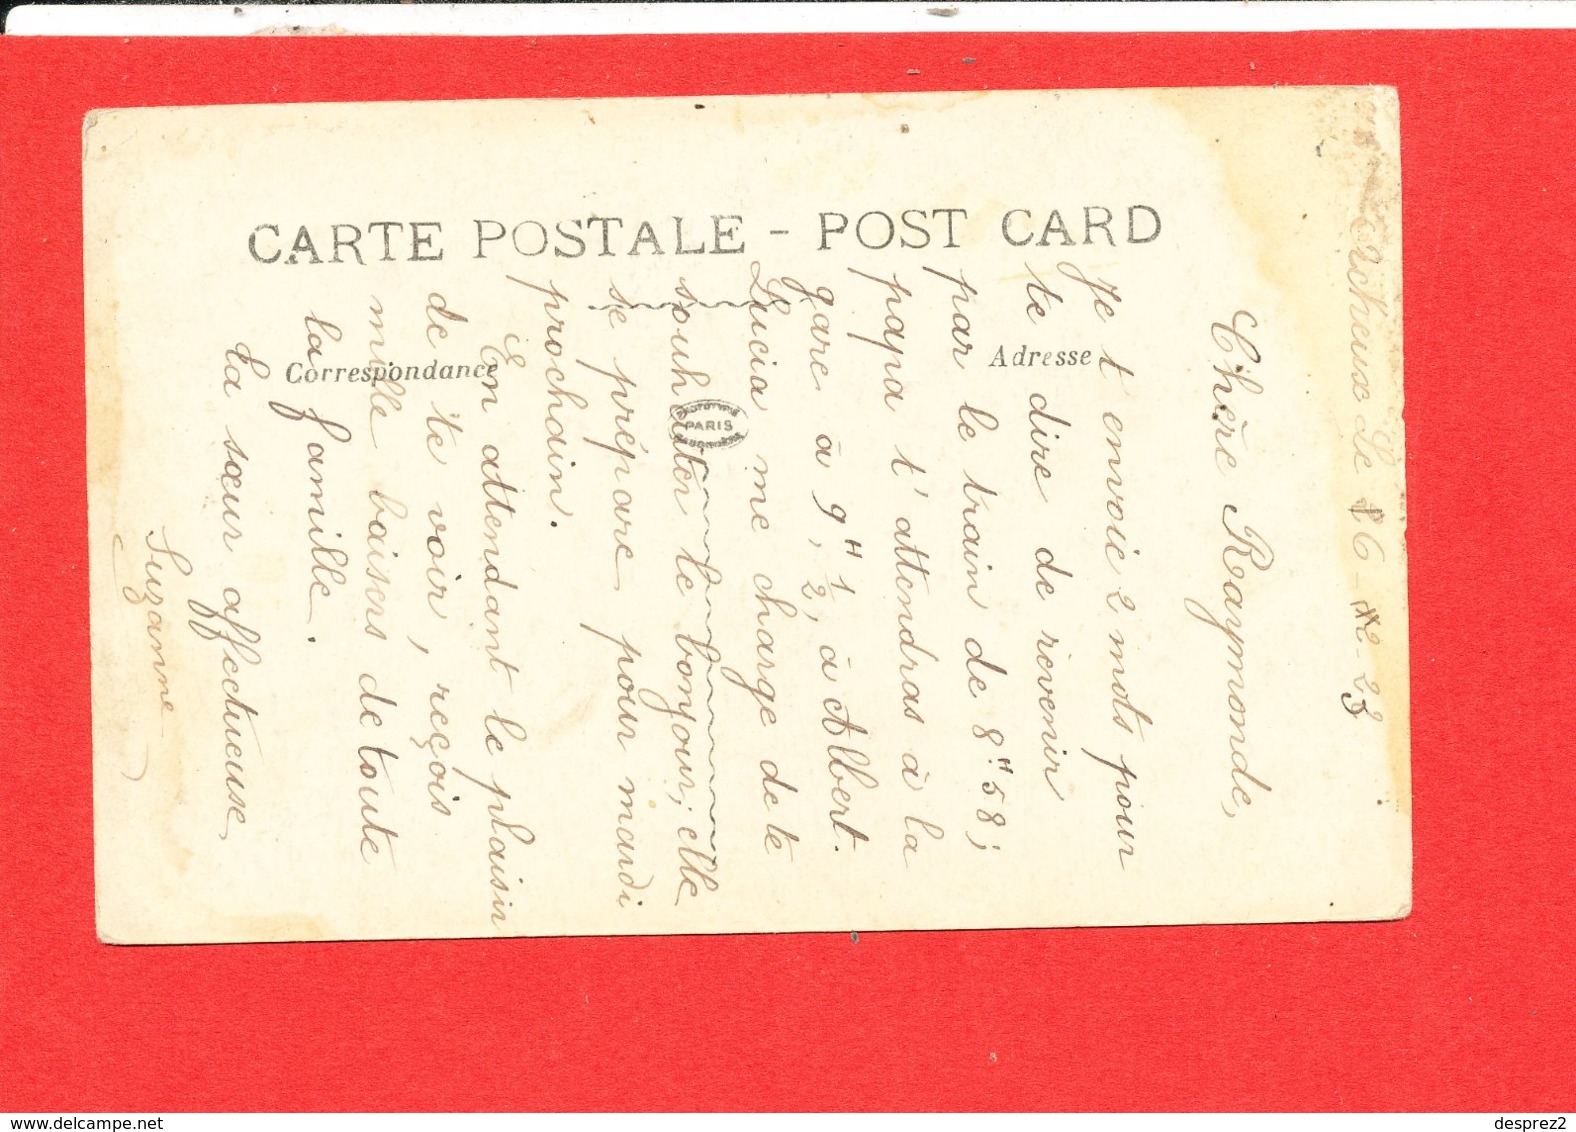 CARTE POSTALE - POST CARD
Correspondance
Adresse
PARIS
Acheux Le 26-12-23
Chère Raymonde,
Je t'envoie 2 mots pour
te dire de revenir
par le train de 8H58;
papa t'attendras à la
gare à 9H 1/2, à Albert.
Lucia me charge de te
souhaiter le bonjour; elle
se prépare pour mardi
prochain.
En attendant le plaisir
de te voir, reçois
mille baisers de toute
la famille.
Ta sœur affectueuse
Suzanne
desprez2